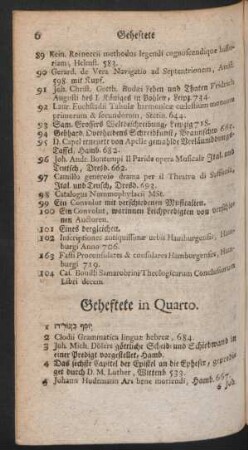 6 Geheftete
89 Rein. Reinercii methodus legendi cognoscendique histo-
riam, Helmst. 583.
90 Gerard. de Vera Navigatio ad Septentrionem, Amst.
598. mit Kupf.
91 Joh. Christ. Gottl. Budæi Leben und Thaten Friedrich
Augusti des I. Königes in Pohlen, Leipz. 734.
92 Laur. Eichstadii Tabulæ harmonicæ cœlestium motuum
primorum & secundorum, Stetin. 644.
93 Sam. Großers Weltbeschreibung, Leipzig 718.
94 Gebhard Overhedens Schreibkunst, Braunschw.
95 D. Capel erneuert von Apelis gemahlte Verläumdung,
Cassel, Hamb. 682.
96 Joh. Andr. Bontempi Il Paride opera Musicale Ital. und
Teutsch, Dresd. 662.
97 Camillo generoso drama per il Theatro di
Ital. und Teutsch, Dresd. 693.
98 Catalogus Nummophylacii MSt.
99 Ein Convolut mit verschiedenen Musicalien.
100 Ein Convolut, worinnen Leichpredigten von
nen Authoren.
101 Eines dergleichen.
102 Inscriptiones antiquissimæ urbis Hamburgensis, Ham-
burgi Anno 706.
163 Fasti Proconsulares & consulares Hamburgenses, Ham-
burgi 719.
104 Cas. Bondb Samarobrini Theologicarum Conclusionum
Libri decem.
Geheftete in Quarto.
1
2 Clodii Grammatica linguæ hebreæ, 684.
3 Joh. Mich. Döhlers göttliche Scheid- und Schiedwand in
einer Predigt vorgestellet, Hamb.
4 Das sechste Capitel der Epistel an die Epheser, gepredi-
get durch D. M. Luther, Wittenb 533.
5 Johann Hudemann Ars bene moriendi, Hamb. 667.
6 Joh.